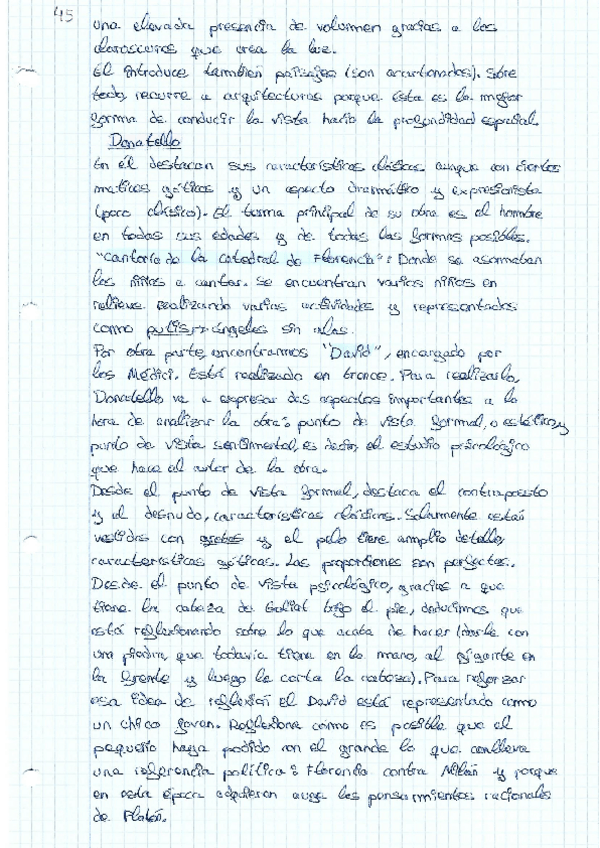 45
una elevada presencia de volumen gracias a los
claroscuros que crea la luz.
El introduce también paisajes (son acartonados). Sobre
todo, recurre a arquitecturas porque ésta es la mejor
forma de conducir la vista hacia la profundidad espacial.
Donatello
En él destacan sus características clásicas aunque con ciertos
matices góticos y un aspecto dramático y expresionista
(poco clásico). El tema principal de su obra es el hombre
en todas sus edades y de todas las formas posibles.
"Cantoría de la catedral de Florencia": Donde se asomaban
los niños a cantar. Se encuentran varios niños en
relieve realizando varias actividades y representados
como putis, → ángeles sin alas.
Por otra parte, encontramos "David", encargado por
los Médici. Está realizado en bronce. Para realizarlo,
Donatello va a expresar dos aspectos importantes a la
hora de analizar la obra: punto de vista formal, o estético, y
punto de vista sentimental, es decir, el estudio psicológico
que hace el autor de la obra.
Desde el punto de vista formal, destaca el contrapposto
y el desnudo, características clásicas. Solamente están
vestidos con y el pelo tiene amplio detalle,
características góticas. Las proporciones son perfectas.
Desde el punto de vista psicológico, gracias a que
tiene la cabeza de Goliat bajo el pie, deducimos que
está reflexionando sobre lo que acaba de hacer (darle con
una piedra, que todavía tiene en la mano, al gigante en
la frente y luego le corta la cabeza). Para reforzar
esa idea de reflexión el David está representado como
un chico joven. Reflexiona cómo es posible que el
pequeño haya podido con el grande lo que conlleva
una referencia política: Florencia contra Milán y porque
en esta época adquieren auge los pensamientos racionales
de Platón.